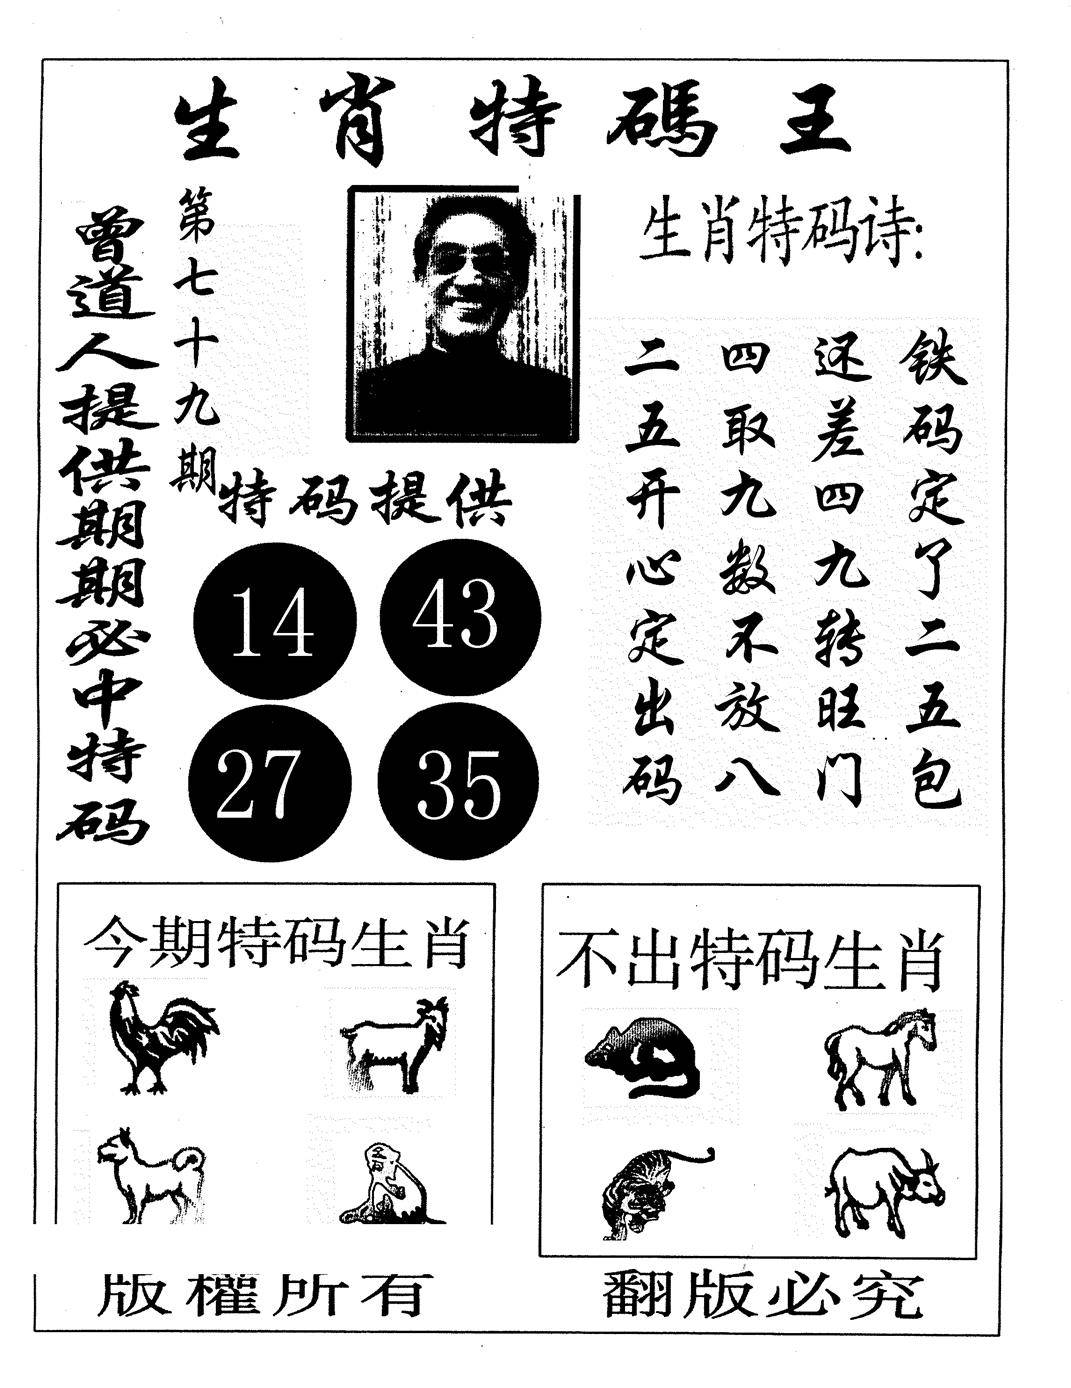 生肖特碼王
曾道人提供期期必中特码
第七十九期
生肖特码诗:
铁码定了二五包
还差四九转旺门
四取九数不放八
二五开心定出码
特码提供
14 43
27 35
今期特码生肖
不出特码生肖
版權所有
翻版必究